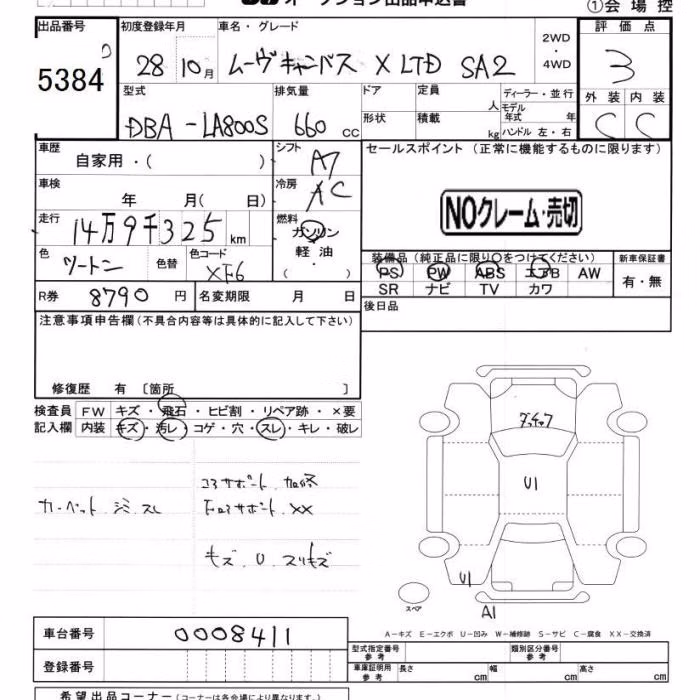 オークション出品申込書
①会場控
出品番号 初度登録年月 車名・グレード 2WD・4WD 評価点
5384 28 10月 ムーヴキャンバス X LTD SA2 3
外装 内装
C C
型式 排気量 ドア 定員 人 ディーラー・並行
DBA-LA800S 660 cc 形状 積載 kg モデル年式 年
ハンドル 左・右
車歴 自家用・( ) シフト A7 セールスポイント (正常に機能するものに限ります)
車検 年 月( 日) 冷房 AC
NOクレーム・売切
走行 14万9千325km 燃料 ガソリン 軽油 ( ・ )
色 ツートン 色替 色コード XF6
装備品(純正品に限り○をつけてください) 新車保証書
PS PW ABS エアB AW 有・無
SR ナビ TV カワ
R券 8790 円 名変期限 月 日 後日品
注意事項申告欄(不具合内容等は具体的に記入して下さい)
修復歴 有 〔箇所 〕
検査員 FW キズ・飛石・ヒビ割・リペア跡・×要
記入欄 内装 キズ・汚レ・コゲ・穴・スレ・キレ・破レ
コアサポート 加修
カーペット シミ スレ
下コアサポート XX
キズ U スリキズ
U1
U1
A1
スペア
A-キズ E-エクボ U-凹み W-補修跡 S-サビ C-腐食 XX-交換済
車台番号 0008411 型式指定番号 参考 類別区分番号 参考
登録番号 車庫証明用 参考 長さ cm 幅 cm 高さ cm
希望出品コーナー (コーナーは各会場により異なります)